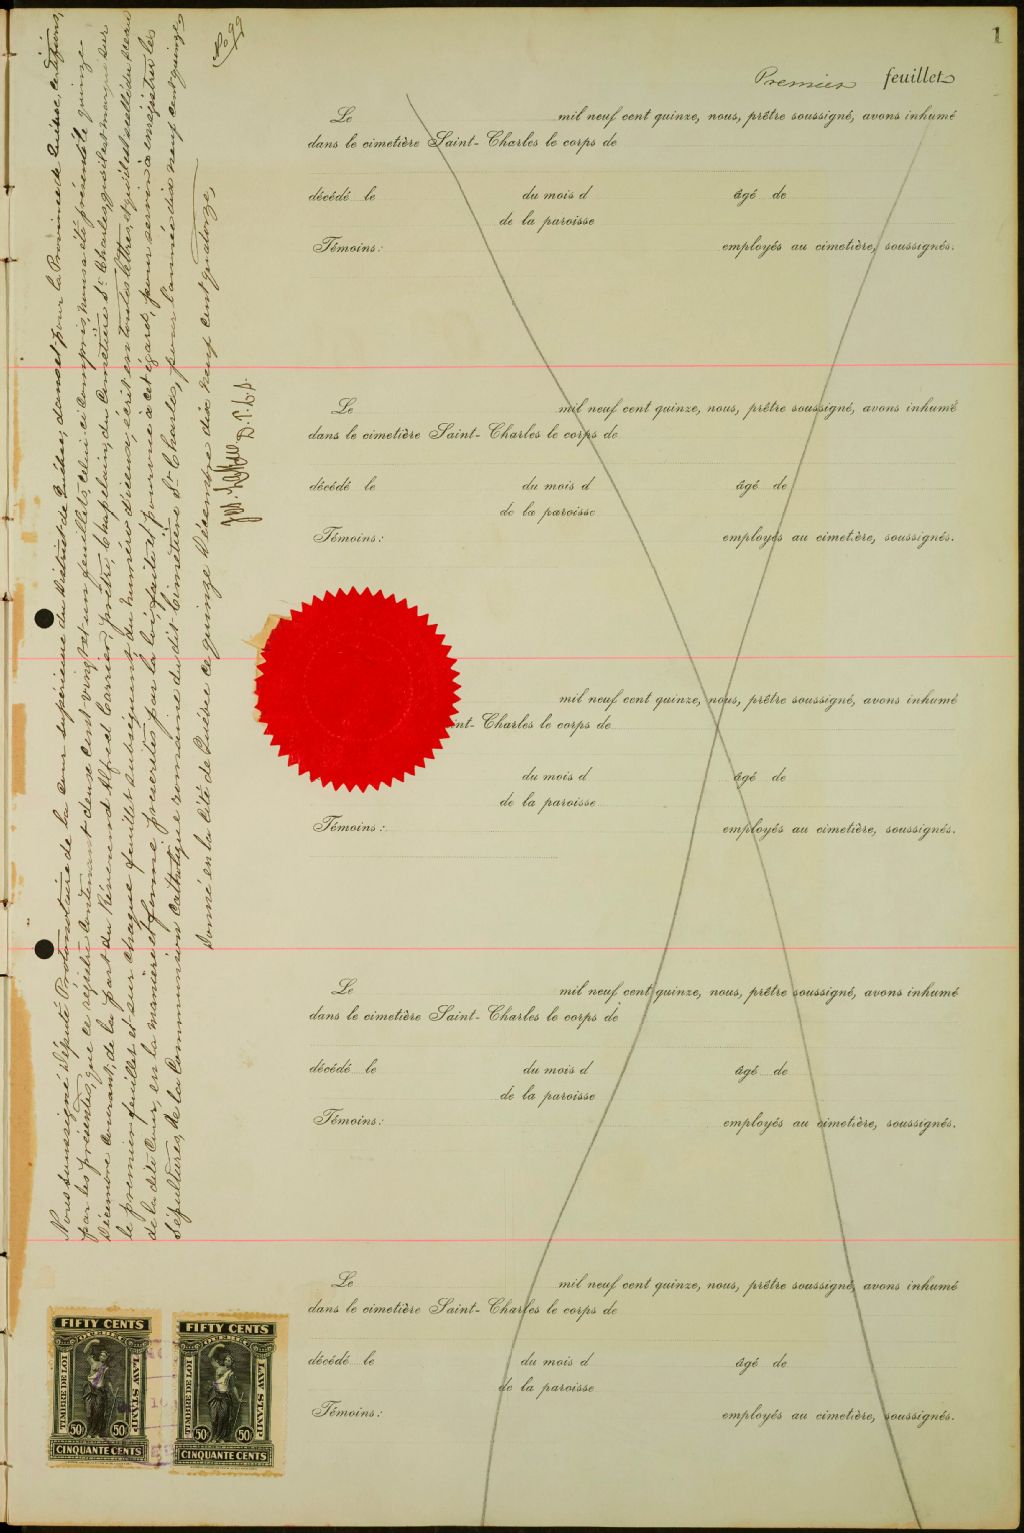 1
Premier feuillet
Le mil neuf cent quinze, nous, prêtre soussigné, avons inhumé
dans le cimetière Saint-Charles le corps de
décédé le du mois d âgé de
de la paroisse
Témoins: employés au cimetière, soussignés.
Le mil neuf cent quinze, nous, prêtre soussigné, avons inhumé
dans le cimetière Saint-Charles le corps de
décédé le du mois d âgé de
de la paroisse
Témoins: employés au cimetière, soussignés.
mil neuf cent quinze, nous, prêtre soussigné, avons inhumé
int-Charles le corps de
du mois d âgé de
de la paroisse
Témoins: employés au cimetière, soussignés.
Le mil neuf cent quinze, nous, prêtre soussigné, avons inhumé
dans le cimetière Saint-Charles le corps de
décédé le du mois d âgé de
de la paroisse
Témoins: employés au cimetière, soussignés.
Le mil neuf cent quinze, nous, prêtre soussigné, avons inhumé
dans le cimetière Saint-Charles le corps de
décédé le du mois d âgé de
de la paroisse
Témoins: employés au cimetière, soussignés.
Nous soussigné Député Protonotaire de la cour supérieure du District de Québec, dans et pour la Province de Québec, certifions,
par les présentes, que ce régistre contenant deux cent vingt et un feuillets, celui ci compris, nous a été présenté le quinze
Décembre courant, de la part du Révérend Alfred Carrier prêtre, Chapelain, du Cimetière St Charles, qu'il est marqué sur
le premier feuillet et sur chaque feuillet subséquent du numéro d'icieux, écrit en toutes lettres, et qu'il est scellé du sceau
de la dite Cour, en la manière et forme prescrites par la loi, faite et pourvue à cet égard, pour servir à enregistrer les
sépultures, de la Communion Catholique romaine du dit Cimetière St Charles, pour l'année dix neuf cent quinze,
Donné en la Cité de Québec ce quinze Décembre dix neuf cent quatorze,
D.P.C.S.
FIFTY CENTS
QUEBEC
TIMBRE DE LOI
LAW STAMP
50 50
CINQUANTE CENTS
FIFTY CENTS
QUEBEC
TIMBRE DE LOI
LAW STAMP
50 50
CINQUANTE CENTS